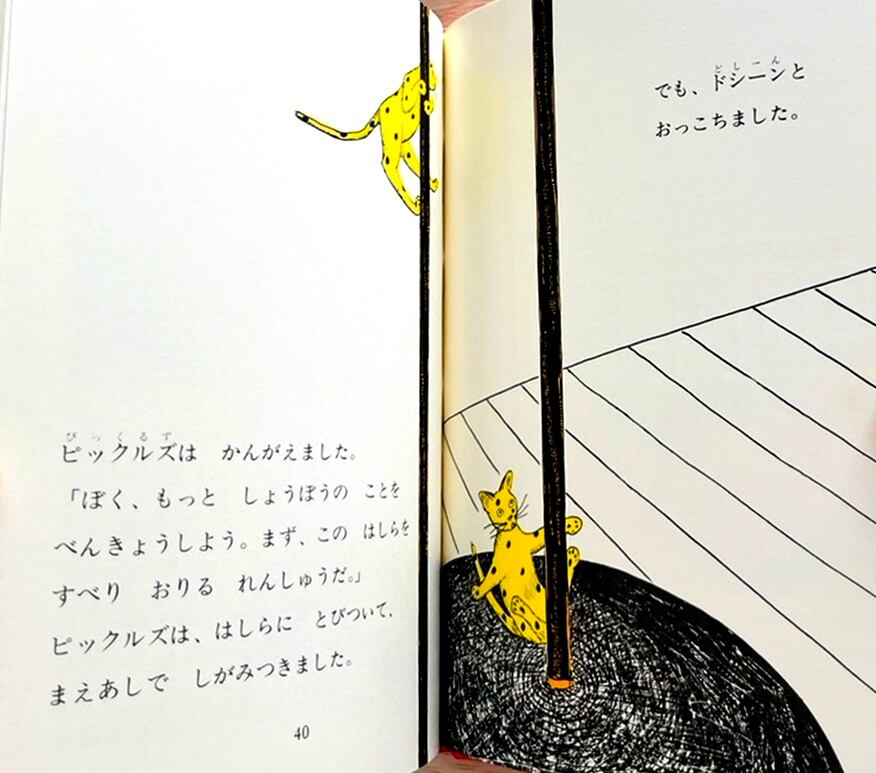 ピックルズは　かんがえました。
「ぼく、もっと　しょうぼうの　ことを
べんきょうしよう。まず、この　はしらを
すべり　おりる　れんしゅうだ。」
ピックルズは、はしらに　とびついて、
まえあしで　しがみつきました。
40
でも、ドシーンと
おっこちました。